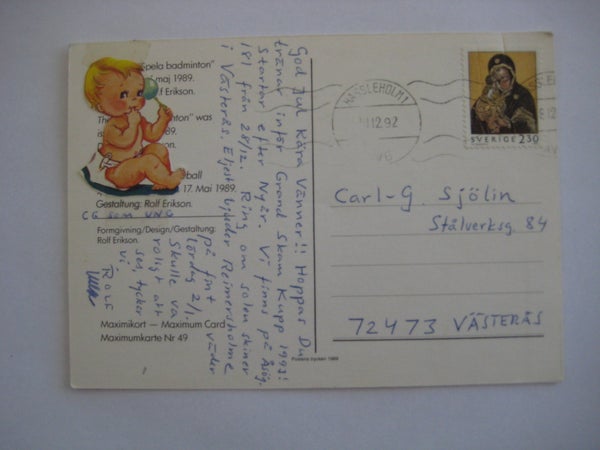 pela badminton"
maj 1989.
lf Erikson.
The
nton" was
is
1989.
Erikson.
ball
17. Mai 1989.
Gestaltung: Rolf Erikson.
CG SOM UNG
Formgivning/Design/Gestaltung:
Rolf Erikson.
Maximikort — Maximum Card
Maximumkarte Nr 49
God Jul Kära Vänner!! Hoppas Du
tränar inför Grand Skam Kupp 1993!
Startar efter Nyår. Vi finns på Åsög.
181 från 28/12. Ring om solen skiner
i Västerås. Eljest bjuder Reimersholme
på fint väder
lördag 2/1.
Skulle va
roligt att
ses, tycker
vi
Rolf
Postens tryckeri 1989
HÄSSLEHOLM 1
12.92
SVERIGE 2.30
Carl-G. Sjölin
Stålverksg. 84
72473 VÄSTERÅS